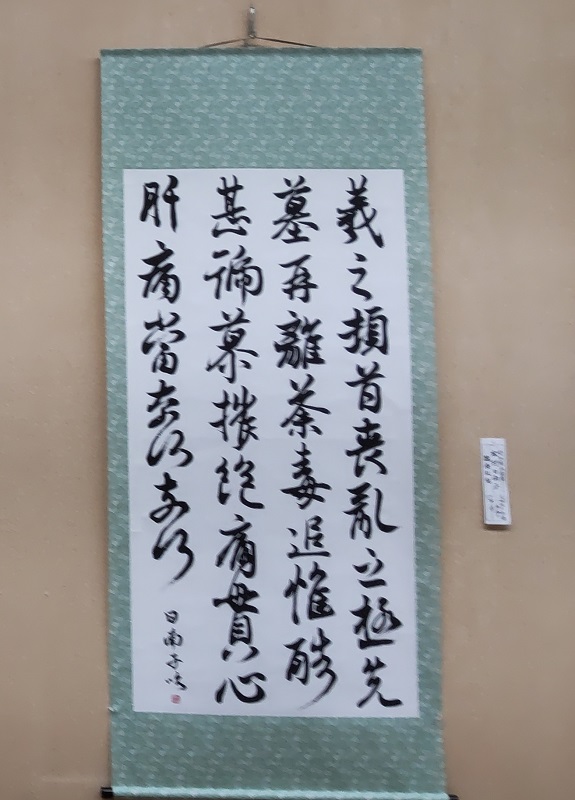 羲之頓首喪亂之極先
墓再離荼毒追惟酷
甚號慕摧絶痛貫心
肝痛當奈何奈何
日南子